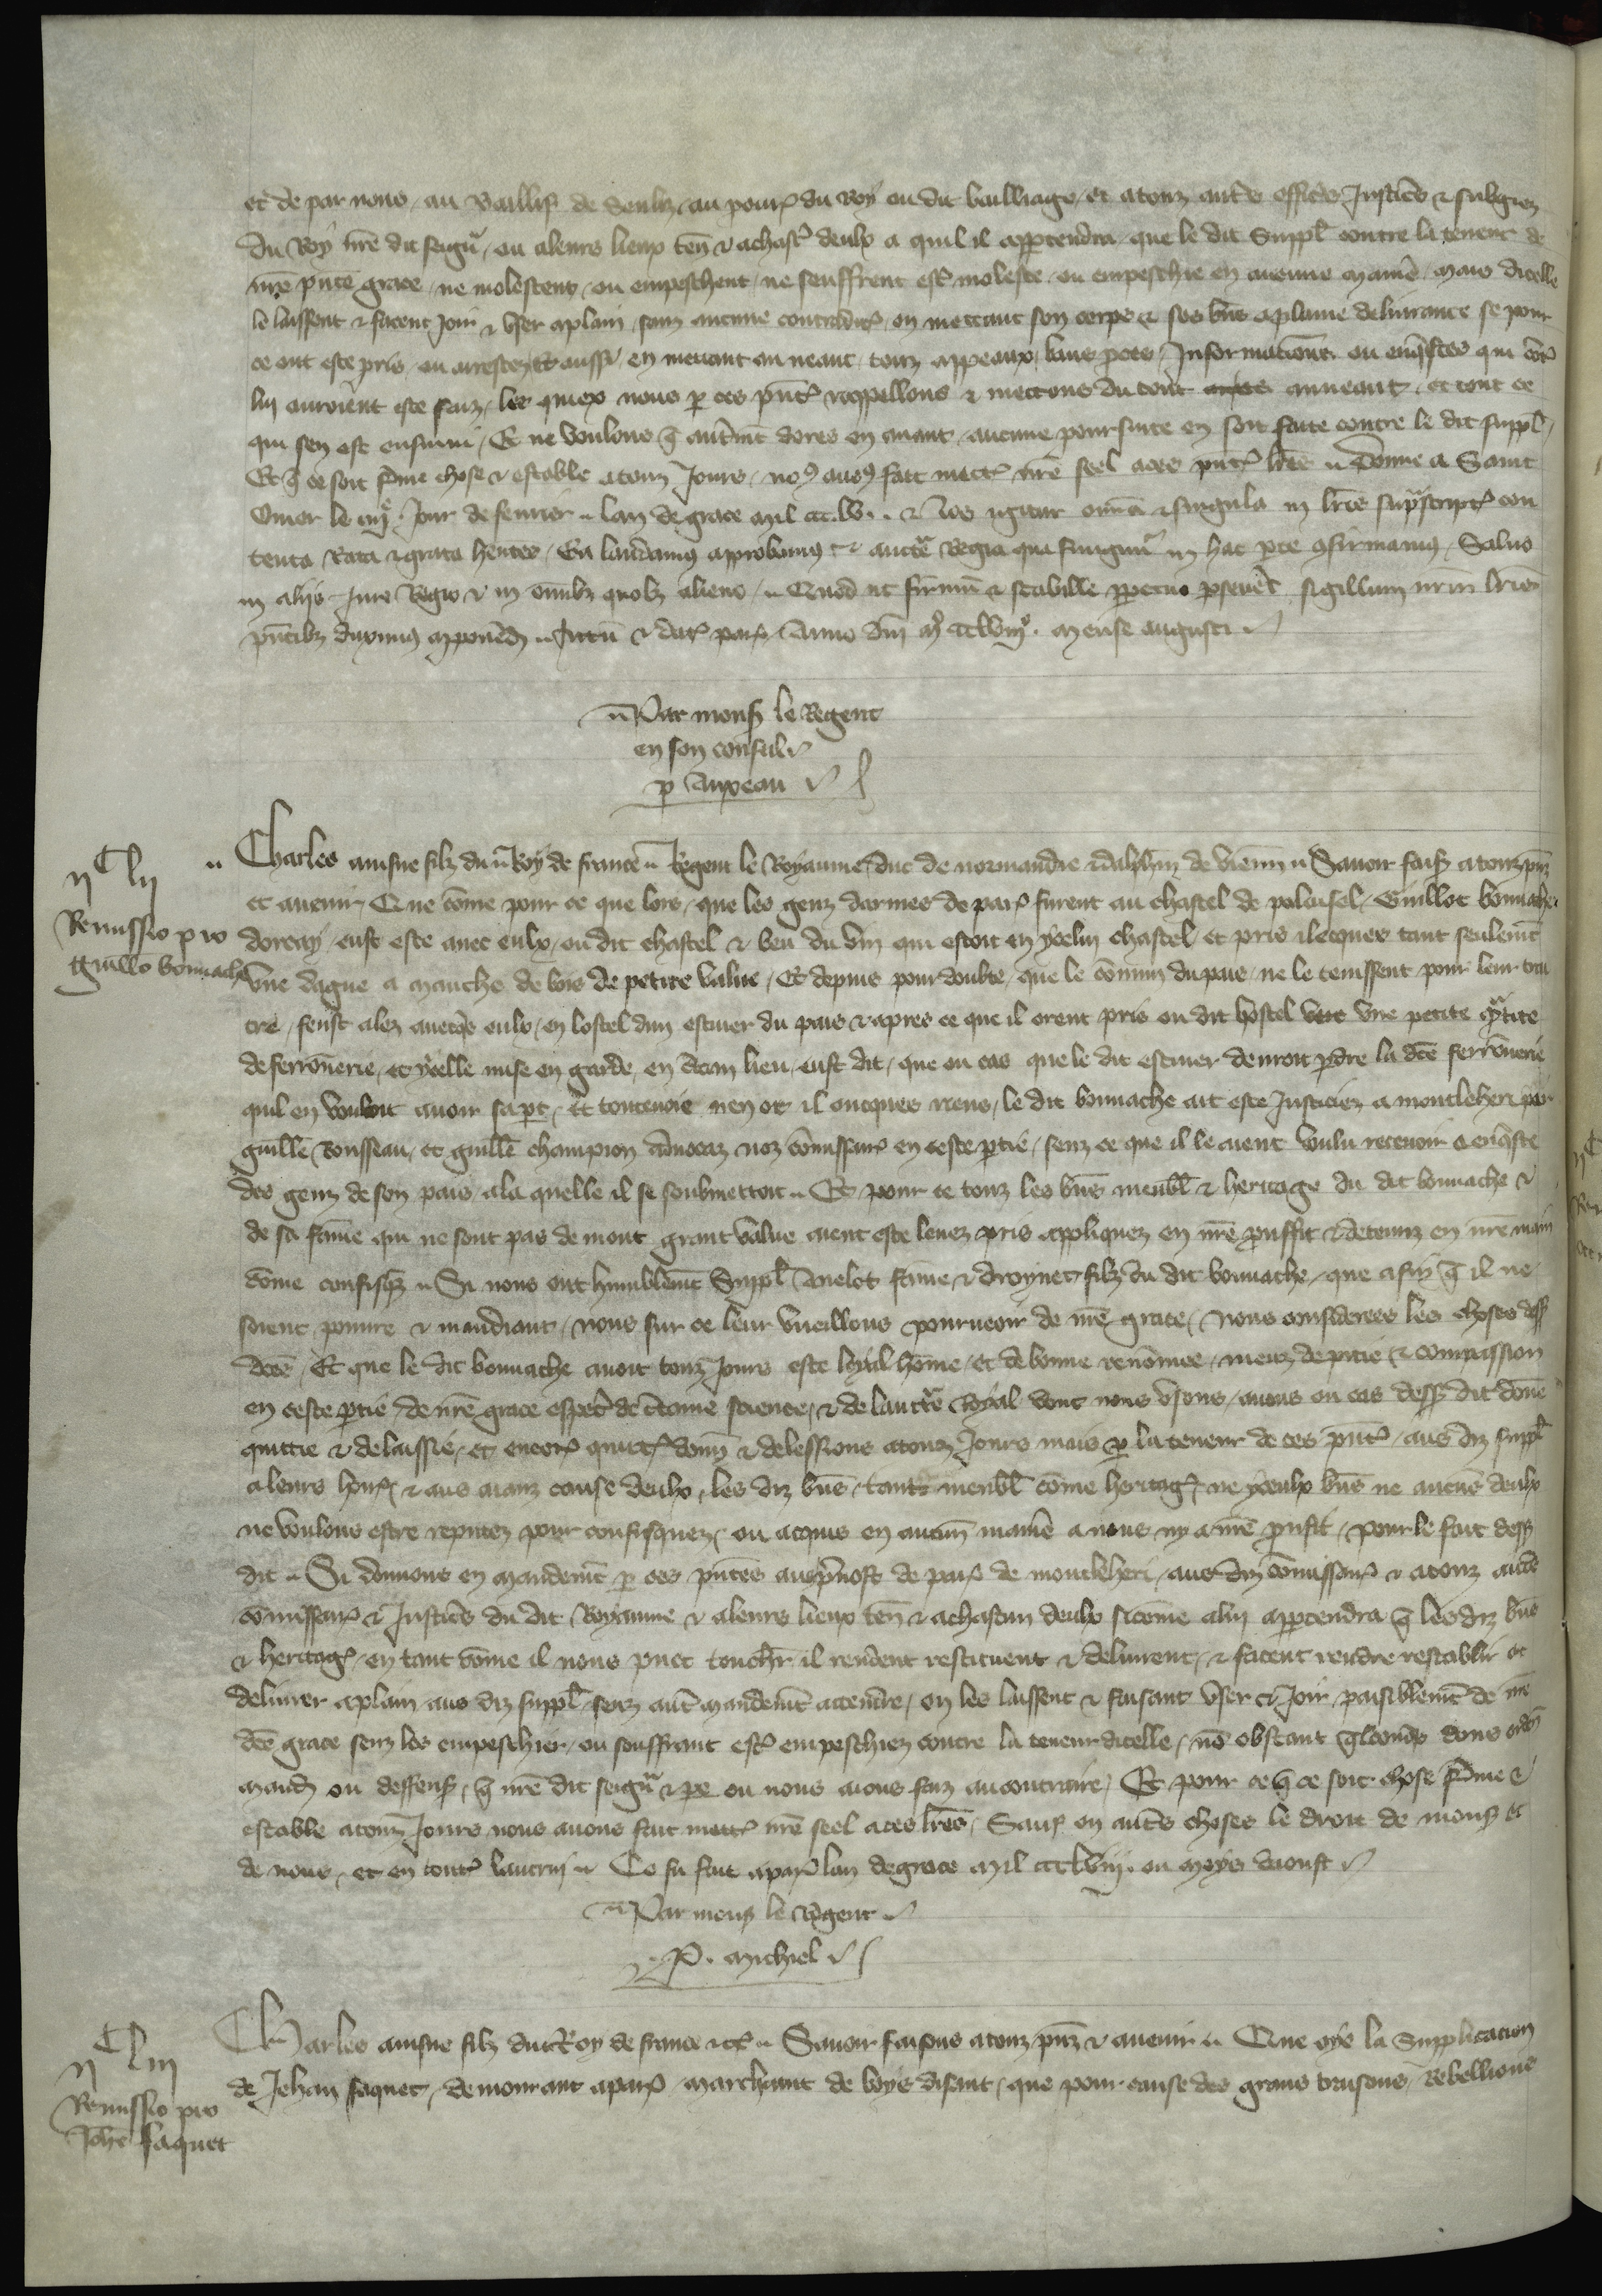 et de par nous au Baillif de Senliz au pour du Roy ou dit bailliage et a touz autres officiers Justiciers & subgiez
du Roy nre dit seigur ou a leurs lieux ten & a chascun deulx a qui il appartendra que le dit Suppl contre la teneur de
nre pnte grace ne molestent ou empeschent ne seuffrent estre moleste ou empeschie en aucune maniere mais dicelle
le laissent & facent Joir & user a plain sanz aucun contredit en mettant son corps & ses biens a plaine delivrance se pour
ce ont este pris ou arrestez Et aussi en mettant au neant touz appeaux bans proces Informacions ou enquestes qui contre
luy auroient este faiz les quiex nous par ces pntes rappellons & mettons du tout anneant et tout ce
qui sen est ensuivi Et ne voulons que autrement dores en avant aucune poursuite en soit faite contre le dit suppl
Et que ce soit ferme chose & estable a touz Jours nous avons fait mettre nre seel a ces pntes lres Donne a Saint
Omer le jour de fevrier lan de grace mil ccc.lv. & Nos igitur omnia & singula in lris suprascriptis con
tenta Rata & grata hentes Ea laudamus approbamus & auctte Regia qua fungimur in hac parte confirmamus Salvo
in aliis Jure Regio & in omnibz quolibz alieno Quod ut firmum & stabille perpetuo perseveret sigillum nrm lris
pntibz duximus apponend Actum & dat par Anno dni mo ccclviijo mense augusti
Par mons le Regent
en son conseil
p Anxeau
Charles ainsne filz du Roy de france Regent le Royaume duc de normandie & dalphin de viennois Savoir faisons a touz pns
et avenir Que come pour ce que lors que les genz darmes de paris furent au chastel de paloisel Guillot bonnache
dorcay eust este avec eulx ou dit chastel & beu du vin qui estoit en ycelui chastel et pris ilecques tant seulement
une dague a manche de bois de petite value Et depuis pour doubte que le comun du pais ne le tenissent pour leur trai
tre fenst alez avecques eulx en lostel dun escuier du pais & apres ce que il orent pris ou dit hostel une petite quantite
de ferronerie et ycelle mise en garde en certain lieu eust dit que ou cas que le dit escuier devroit perdre la dite ferronerie
quil en vouloit avoir sa part Et toutevoie nen ot il oncques riens le dit bonnache ait este Justiciez a montleheri par
guille Rousseau et guille champion advocaz noz comissaires en ceste partie senz ce que il le aient voulu recevoir a enqueste
des genz de son pais a la quelle il se soubmettoit Et pour ce touz les biens meubl & heritage du dit bonnache &
de sa fame qui ne sont pas de mout grant value aient este levez pris appliquez en nre prouffit & detenuz en nre main
come confisquez Si nous ont humblement Suppl Anelot fame & droynet filz du dit bonnache que afin que il ne
soient povure & mandiant nous sur ce leur vueillons pourveoir de nre grace Nous considerees les choses dess
dites Et que le dit bonnache avoit touz Jours este loyal home et de bonne renomee meuz de pitie & compassion
en ceste partie de nre grace especial de certaine science & de lauctte Royal dont nous usons avons ou cas dessus dit done
quittie & delaissie et encores quittons donn & delessions a touz Jours mais par la teneur de ces pntes aus diz suppl
a leurs hoirs & aus aianz cause deulx les diz biens tant meubl come heritages ne yceulx biens ne aucuns deulx
ne voulons estre reputez pour confisquez ou acquis en aucune maniere a nous ny a nre profit pour le fait dess
dit Si donnons en mandement par ces pntes aus prevost de paris de montleheri aus diz comissaires & a touz autres
comissaires & Justiciers du dit Royaume & a leurs lieux ten & a chascun deulx si come a lui appartendra que les diz biens
& heritages en tant come il nous puet touchier il rendent restituent & delivrent & facent rendre restablir et
delivrer a plain aus diz suppl senz autre mandement attendre en les laissent & faisant user & Joir paisiblement de nre
dite grace senz les empeschier ou souffrant estre empeschiez contre la teneur dicelle non obstant quelconques dons orden
mand ou deffenses que nre dit seigur & pere ou nous aions faiz au contraire Et pour ce que ce soit chose ferme &
estable a touz Jours nous avons fait mettre nre seel a ces lres Sauf en autres choses le droit de mons et
de nous et en toutes lautrui Ce fu fait a paris lan de grace mil ccclviij ou moys daoust
Par mons le Regent
P. michiel
Charles ainsne filz du Roy de france & c Savoir faisons a touz pnz & avenir Que oye la Supplicacion
de Jehan faquet demourant a paris marchant de boys disant que pour cause des grans traisons Rebellions
ijC lij
Remissio pro
Guillo bonnache
ijC liij
Remissio pro
Johe faquet